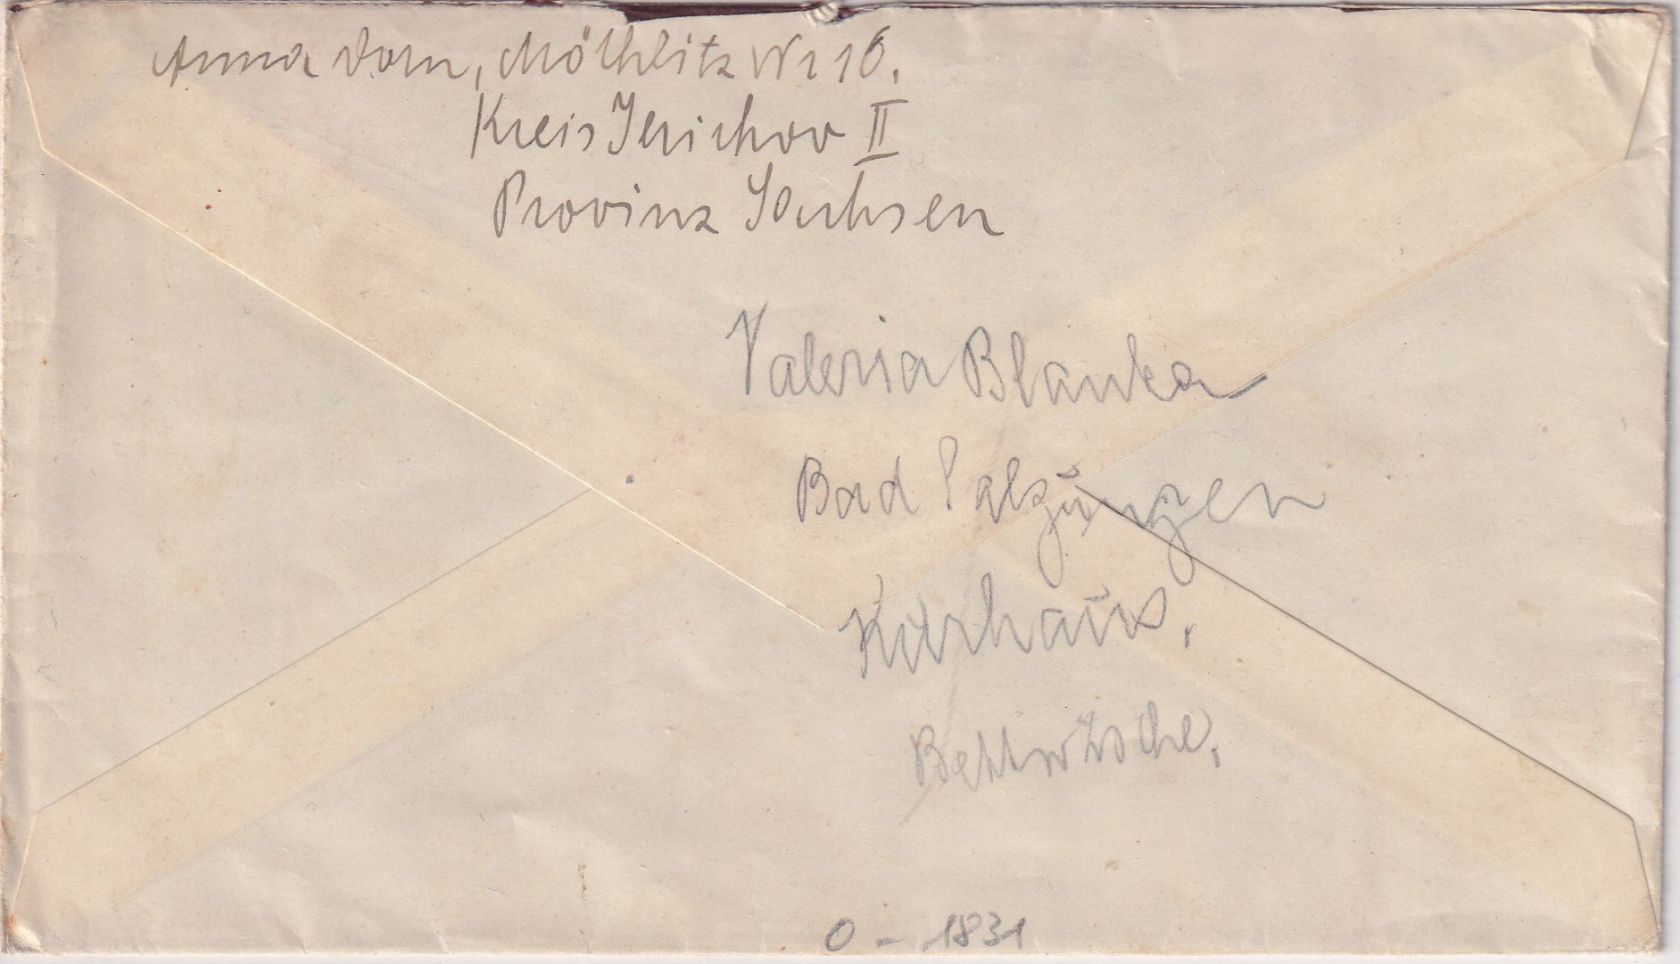 Anna Dorn, Möthlitz Nr 16.
Kreis Jerichow II
Provinz Sachsen
Valeria Blanka
Bad Salzüngen
Kurhaus.
0 - 1831